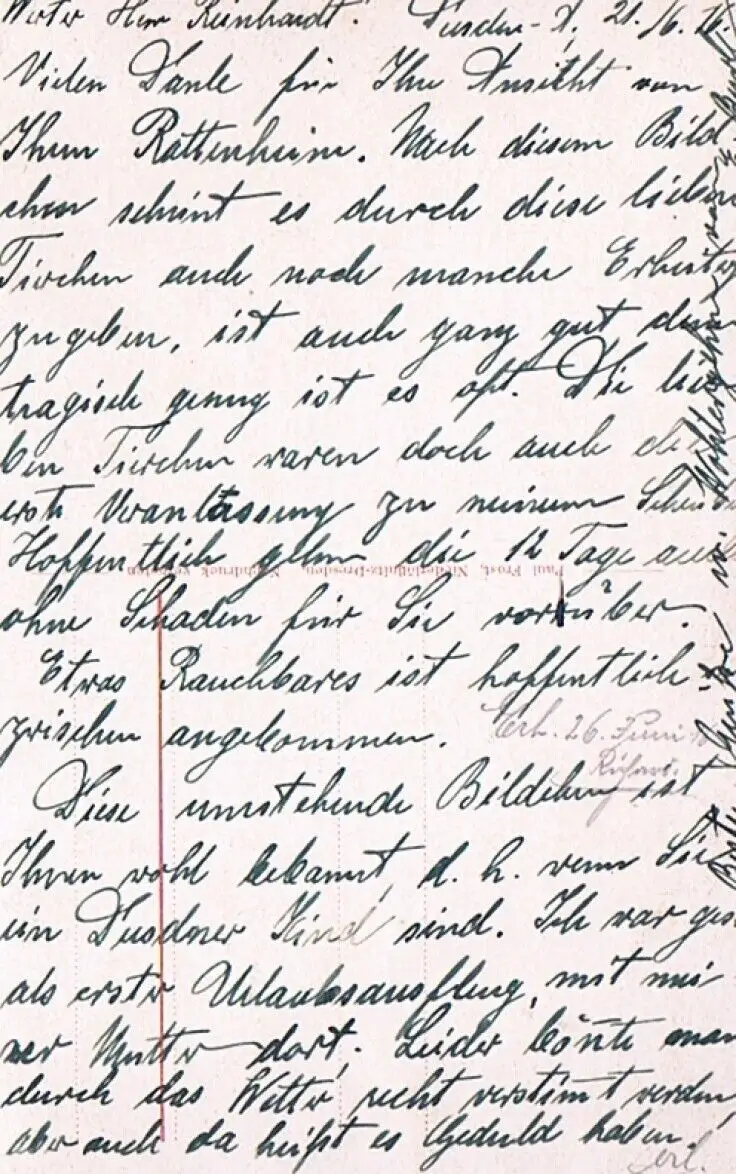 Werter Herr Reinhardt! Dresden-A, 21./6.16.
Vielen Danke für Ihre Ansicht von
Ihrem Rattenheim. Nach diesem Bild-
chen scheint es durch diese lieben
Tierchen auch noch manche Erheiter
zugeben, ist auch ganz gut denn
tragisch genug ist es oft. Die lie-
ben Tierchen waren doch auch die
erste Veranlassung zu meinem
Hoffentlich gehen die 12 Tage auch
ohne Schaden für Sie vorüber.
Etwas Rauchbares ist hoffentlich
zwischen angekommen.
Diese umstehende Bildchen ist
Ihnen wohl bekannt, d. h. wenn Sie
ein Dresdner Kind sind. Ich war ges
als erster Urlaubsausflug, mit mei
ner Mutter dort. Leider könnte man
durch das Wetter recht verstimt werden
aber auch da heißt es Geduld haben!
Erh. 26. Juni
Richard.
Paul Frost, Niederlößnitz-Dresden. Nachdruck verboten